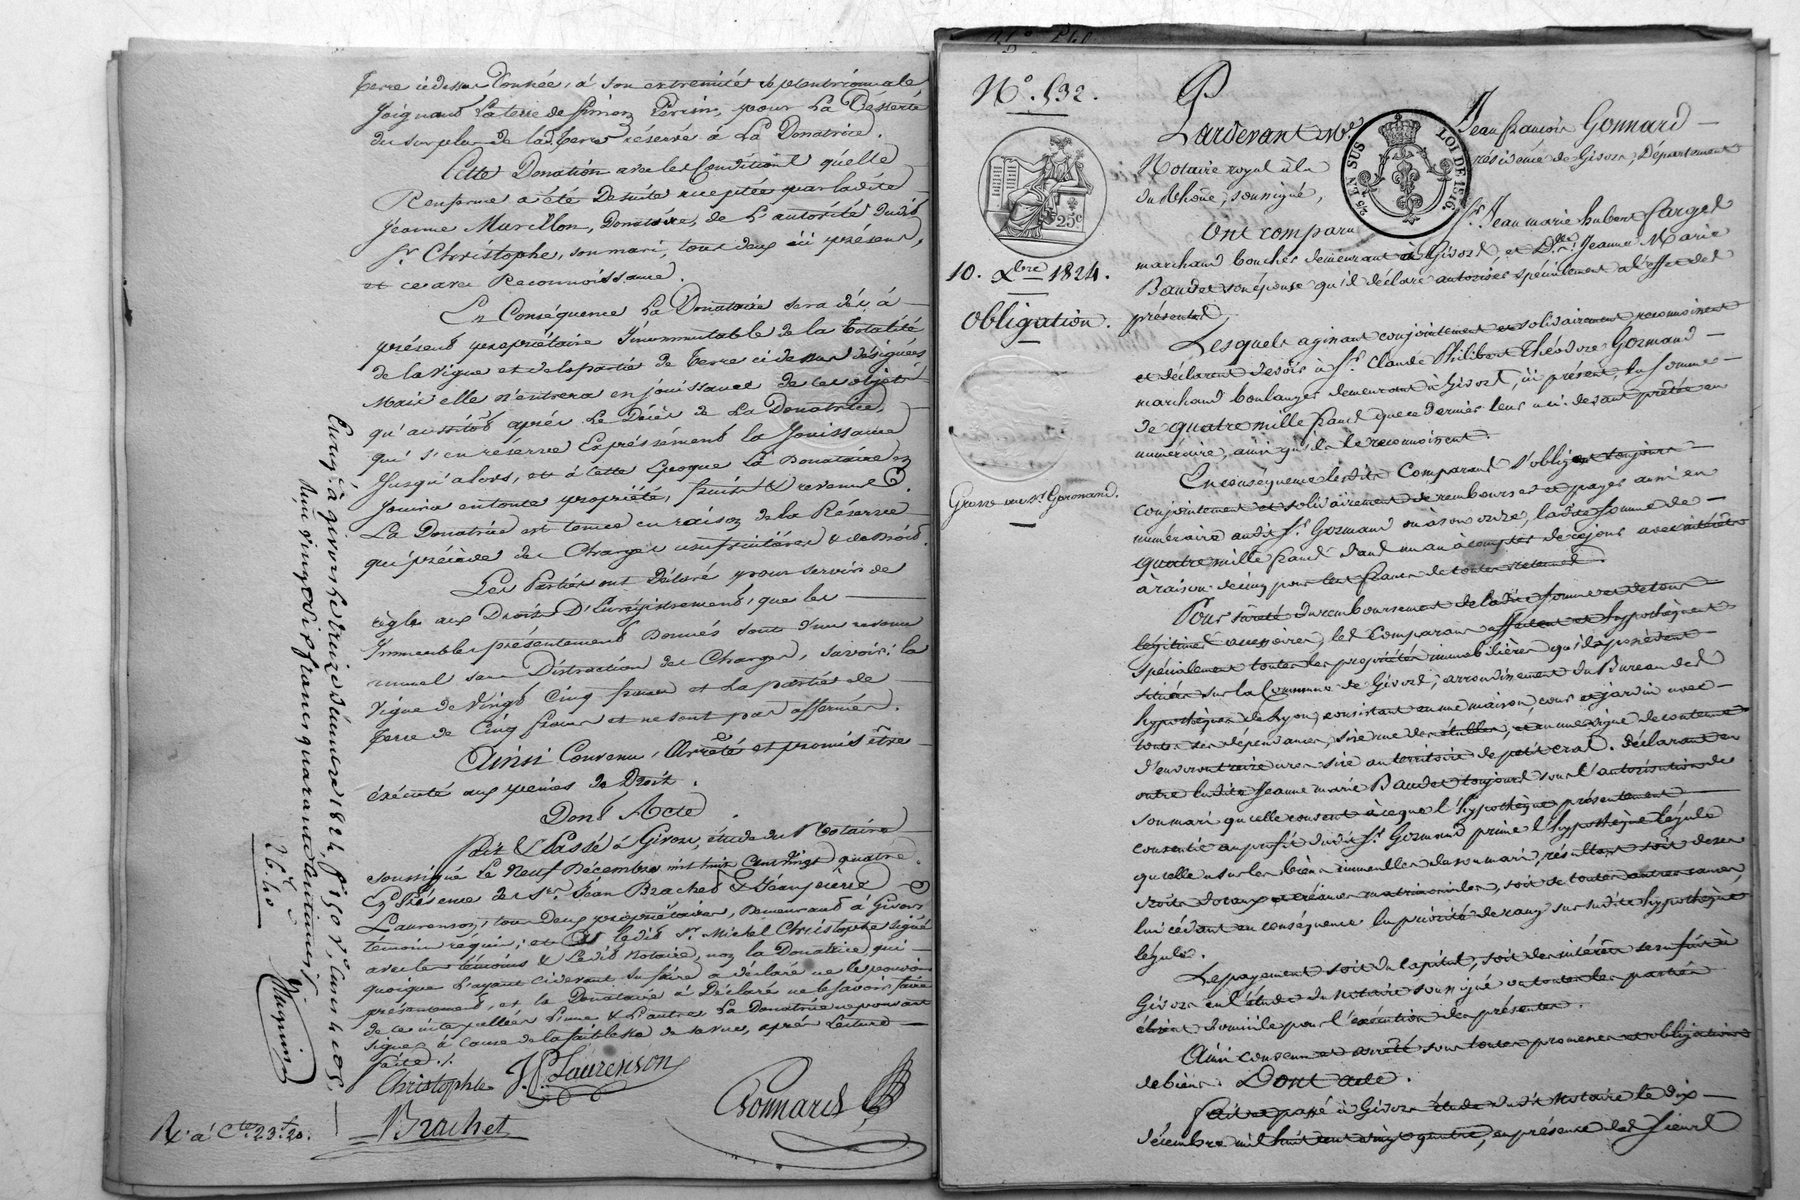 Terre ci-dessus Donnée, à son extremité septentrionale
joignant la terre de Simon Perrin, pour la Desserte
du surplus de la d. Terre réservé à la Donatrice.
Cette Donation avec les Conditions qu'elle
Renferme a été De suite acceptée par ladite
Jeanne Murillon, Donataire, de l'autorité dudit
Sr Christophe, son mari, tous deux ici présens,
et ce avec Reconnoissance.
En Conséquence La Donataire sera dès à
présent propriétaire incommutable de la totalité
de la Vigne et de la partie de Terre ci dessus désignées
Mais elle n'entrera en jouissance de ces objets
qu'aussitôt après le Décès de La Donatrice,
qui s'en réserve Expressément la jouissance
jusqu'alors, et à cette Epoque la Donataire en
jouira en toute propriété, fruits & revenus.
La Donatrice est tenue en raison de la Réserve
qui précède des Charges usufruitières & de Droit.
Les Parties ont Déclaré pour servir de
règle aux Droits D'Enregistrement, que les
Immeubles présentement Donnés sont d'un revenu
annuel sans Distraction des Charges, savoir: la
Vigne de Vingt Cinq francs et la partie de
Terre de Cinq francs et ne sont pas affermés.
Ainsi Convenu, Arrêté et promis être
exécuté aux peines de Droit.
Dont Acte
Fait & Passé à Givors, étude du Notaire
soussigné Le Neuf Décembre mil huit Cent Vingt quatre.
En Présence de Srs Jean Brachet & Jean pierre
Laurenson, tous Deux propriétaires, Demeurans à Givors
témoins requis; et ledit Sr Michel Christophe signé
avec les témoins & Ledit Notaire, non la Donatrice qui
quoique l'ayant ci devant su faire a déclaré ne le pouvoir
présentement, et la Donataire a Déclaré ne le savoir faire
de ce interpellées L'une & L'autre La Donatrice ne pouvant
signer à Cause de la faiblesse de sa vue, après Lecture
faite ./.
Christophe J. P. Laurenson
Brachet Gonnard
Rx à Cte 23.f 20.
Enregé à givors le treize décembre 1824, fo 150 Vo, Cases
Reçu vingt six francs quarante centimes
26f. 40
No. 532.
25c
10. Xbre 1824.
Obligation.
Grosse au Sr Gormand.
25 EN SUS LOI DE 1816.
Pardevant Me Jean françois Gonnard
Notaire royal à la résidence de Givors, Département
du Rhône, soussigné,
Ont comparu Sr Jean marie hubert Farget
marchand boucher demeurant à Givors, et Dlle Jeanne Marie
Baudet son épouse qu'il déclare autoriser spécialement à l'effet des
présentes,
Lesquels agissant conjointement et solidairement reconnoissent
et déclarent devoir à Sr Claude Philibert Théodore Gormand
marchand boulanger demeurant à Givors, ici présent, la somme
de quatre mille francs que ce dernier leur a ci-devant prêtée en
numéraire, ainsi qu'ils le reconnoissent.
En conséquence lesdits Comparans s'obligent toujours
conjointement et solidairement de rembourser et payer aussi en
numéraire audit Sr Gormand ou à son ordre, ladite somme de
quatre mille francs dans un an à compter de ce jour avec intérêts
à raison de cinq pour cent francs de toutes retenues.
Pour sûreté du remboursement de ladite somme et de tous
légitimes accessoires, les Comparans affectent et hypothèquent
spécialement toutes les propriétés immobilières qu'ils possèdent
situées sur la Commune de Givors, arrondissement du Bureau des
hypothèques de Lyon, consistant en une maison, cour et jardin avec
toutes ses dépendances, sise rue des étables, et en une vigne de contenue
d'environ treize ares sise au territoire de petit cras. déclarant en
outre ladite Jeanne marie Baudet toujours sous l'autorisation de
son mari qu'elle consent à ce que l'hypothèque présentement
consentie au profit dudit Sr Gormand prime l'hypothèque légale
qu'elle a sur les biens immeubles de son mari, résultant soit de ses
droits dotaux et créances matrimoniales, soit de toutes autres causes,
lui cédant en conséquence la priorité de rang sur sadite hypothèque
légale.
Le payement soit du Capital, soit des intérêts sera fait à
Givors en l'étude du Notaire soussigné où toutes les parties
élisent domicile pour l'exécution des présentes.
Ainsi convenu et arrêté sous toutes promesses et obligations
de biens. Dont acte.
Fait et passé à Givors étude dudit Notaire le dix
décembre mil huit cent vingt quatre, en présence des Sieurs